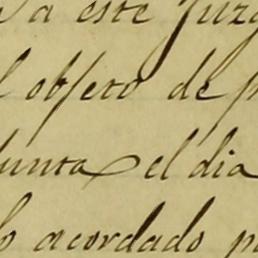 a este Juzg
l objeto de p
unta el dia
lo acordado p